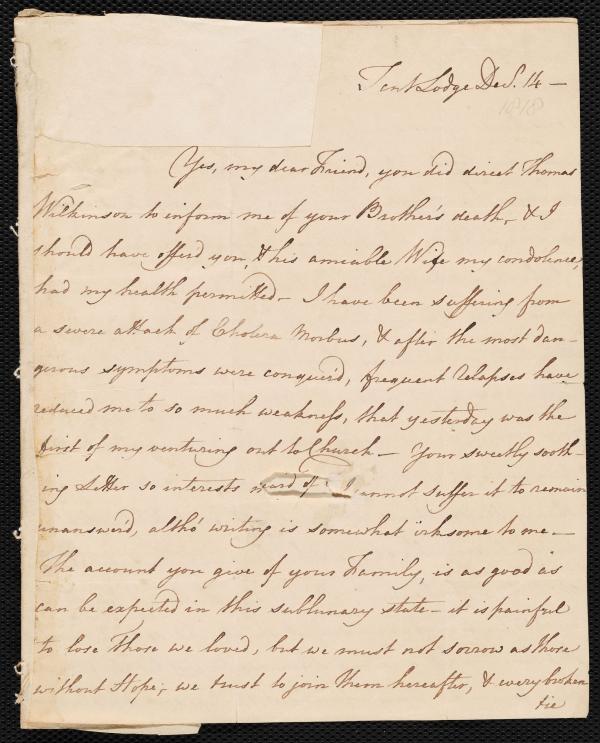 Tent Lodge Dec.r 14 —
1818
Yes, my dear Friend, you did direct Thomas
Wilkinson to inform me of your Brother's death, & I
should have offer'd you, & his amiable Wife my condolence,
had my health permitted — I have been suffering from
a severe attack of Cholera Morbus, & after the most dan-
gerous symptoms were conquer'd, frequent relapses have
reduced me to so much weakness, that yesterday was the
first of my venturing out to Church — Your sweetly sooth-
ing letter so interests I cannot suffer it to remain
unanswer'd, altho' writing is somewhat irksome to me —
The account you give of your Family, is as good as
can be expected in this sublunary state — it is painful
to lose those we loved, but we must not sorrow as those
without Hope, we trust to join them hereafter, & every broken
tie